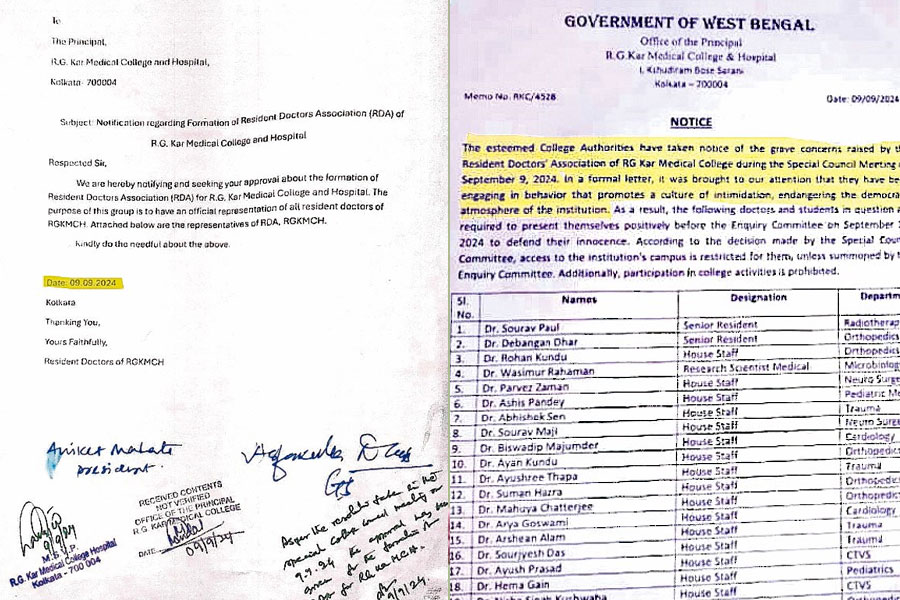 To
The Principal,
R.G. Kar Medical College and Hospital,
Kolkata- 700004
Subject: Notification regarding Formation of Resident Doctors Association (RDA) of
R.G. Kar Medical College and Hospital
Respected Sir,
We are hereby notifying and seeking your approval about the formation of
Resident Doctors Association (RDA) for R.G. Kar Medical College and Hospital. The
purpose of this group is to have an official representation of all resident doctors of
RGKMCH. Attached below are the representatives of RDA, RGKMCH.
Kindly do the needful about the above.
Date: 09.09.2024
Kolkata
Thanking You,
Yours Faithfully,
Resident Doctors of RGKMCH
Aniket Mahato
president.
GS
9/9/24
M.S.V.P.
R.G. Kar Medical College Hospital
Kolkata - 700 004
RECEIVED CONTENTS
NOT VERIFIED
OFFICE OF THE PRINCIPAL
R.G. KAR MEDICAL COLLEGE
DATE 09/9/24
As per the taken in the
special college council meeting on
9.9.24 the approval has
for the formation of
for RGKMCH.
9/9/24.
GOVERNMENT OF WEST BENGAL
Office of the Principal
R.G.Kar Medical College & Hospital
1, Khudiram Bose Sarani
Kolkata – 700004
Memo No. RKC/4528 Date: 09/09/2024
NOTICE
The esteemed College Authorities have taken notice of the grave concerns raised by
Resident Doctors' Association of RG Kar Medical College during the Special Council Meeting
September 9, 2024. In a formal letter, it was brought to our attention that they have
engaging in behavior that promotes a culture of intimidation, endangering the
atmosphere of the institution. As a result, the following doctors and students in question
required to present themselves positively before the Enquiry Committee on September
2024 to defend their innocence. According to the decision made by the Special
Committee, access to the institution's campus is restricted for them, unless summoned by
Enquiry Committee. Additionally, participation in college activities is prohibited.
Sl. No. Names Designation
1. Dr. Sourav Paul Senior Resident
2. Dr. Debangan Dhar Senior Resident Orthopedics
3. Dr. Rohan Kundu House Staff Orthopedics
4. Dr. Wasimur Rahaman Research Scientist Medical
5. Dr. Parvez Zaman House Staff Neuro
6. Dr. Ashis Pandey House Staff Pediatric
7. Dr. Abhishek Sen House Staff Trauma
8. Dr. Sourav Maji House Staff Neuro
9. Dr. Biswadip Majumder House Staff Cardiology
10. Dr. Ayan Kundu House Staff
11. Dr. Ayushree Thapa House Staff Trauma
12. Dr. Suman Hazra House Staff
13. Dr. Mahuya Chatterjee House Staff
14. Dr. Arya Goswami House Staff Cardiology
15. Dr. Arshean Alam House Staff Trauma
16. Dr. Sourjyesh Das House Staff Trauma
17. Dr. Ayush Prasad House Staff CTVS
18. Dr. Hema Gain House Staff Pediatrics
House Staff CTVS